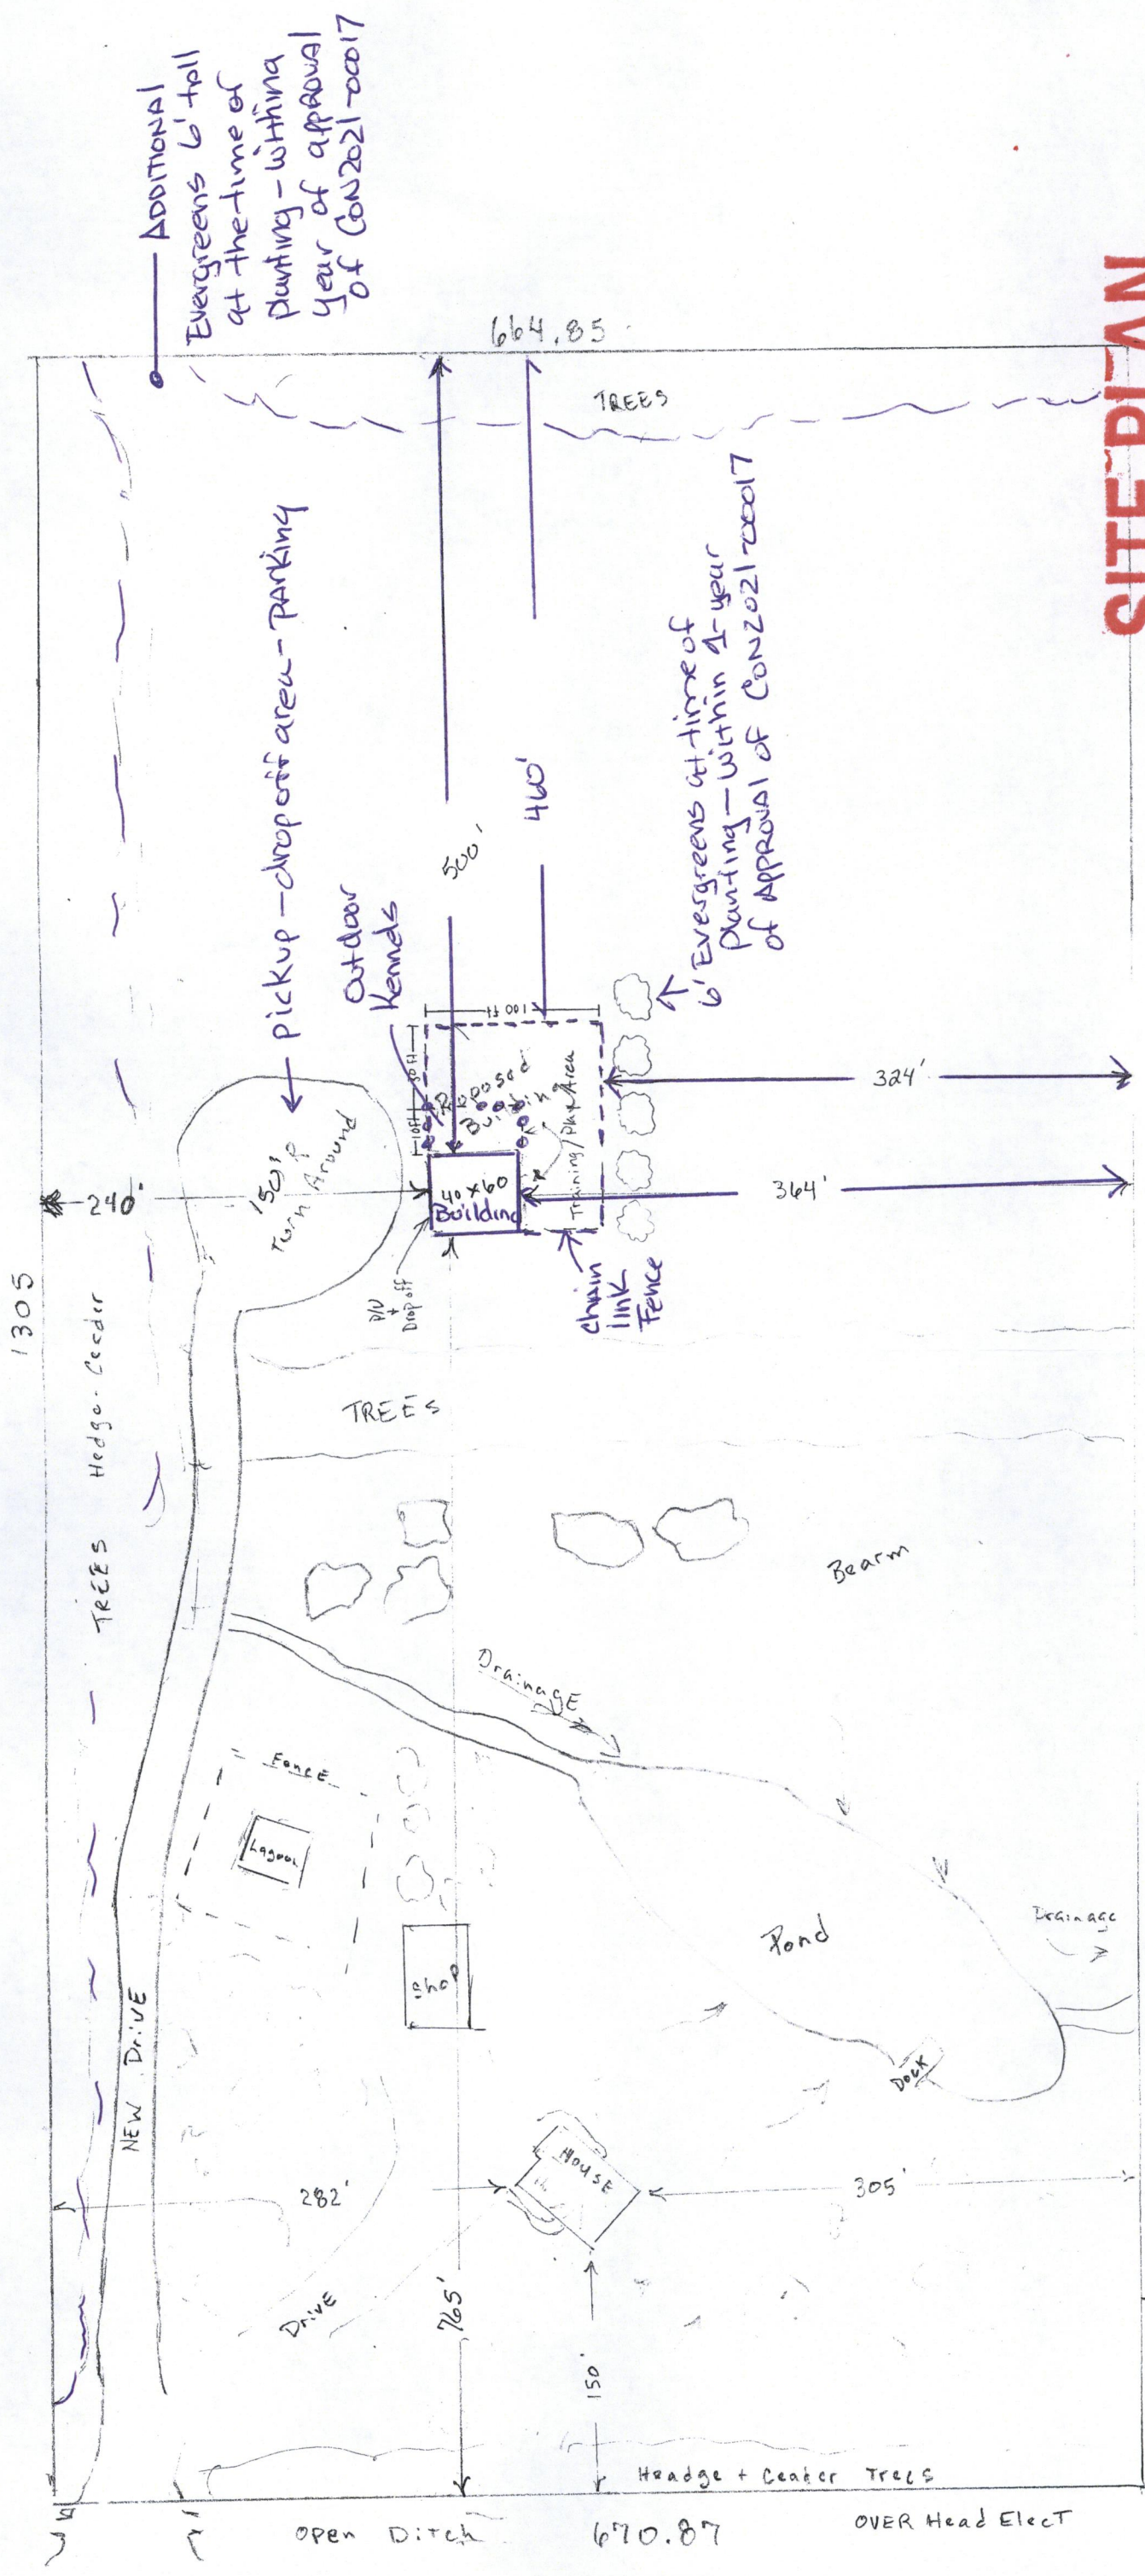 ADDITIONAL
Evergreens 6' tall
at the time of
planting - within a
year of approval
of CON2021-00017
664.85
TREES
pickup - dropoff area - parking
500'
460'
Outdoor
Kennels
6' Evergreens at time of
planting - within 1-year
of APPROVAL of CON2021-00017
SITE PLAN
100 ft
50 ft
10ft
Proposed
Building
Training/Play Area
40 x 60
Building
324'
364'
240'
150'
Turn Around
P/U
+
Drop off
chain
link
Fence
1305
TREES Hedge-Ceeder
TREES
Bearm
Drainage
FencE
Lagoon
Shop
Pond
Drainage
Dock
NEW DrivE
HousE
282'
305'
DrivE
765'
150'
Headge + Ceader Trees
open Ditch
670.87
OVER Head ElecT